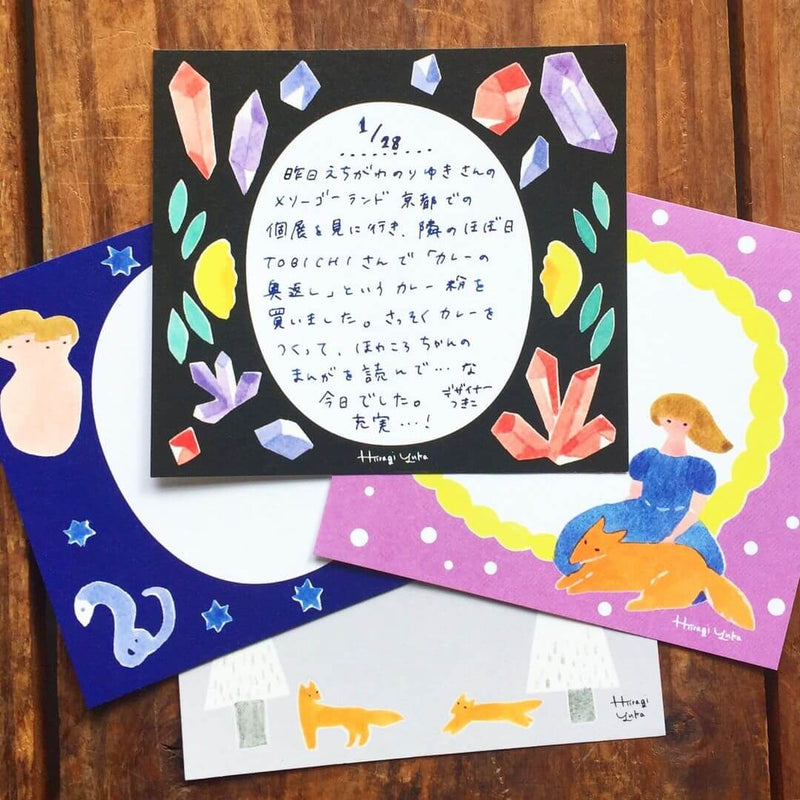 1/28
昨日えちがわのりゆきさんの
メリーゴーランド京都での
個展を見に行き、隣のほぼ日
TOBICHIさんで「カレーの
奥返し」というカレー粉を
買いました。さっそくカレーを
つくって、ほわころちゃんの
まんがを読んで…な
今日でした。
デザイナー
つきこ
充実…!
Hiiragi Yuka
Hiiragi Yuka
Hiiragi
Yuka